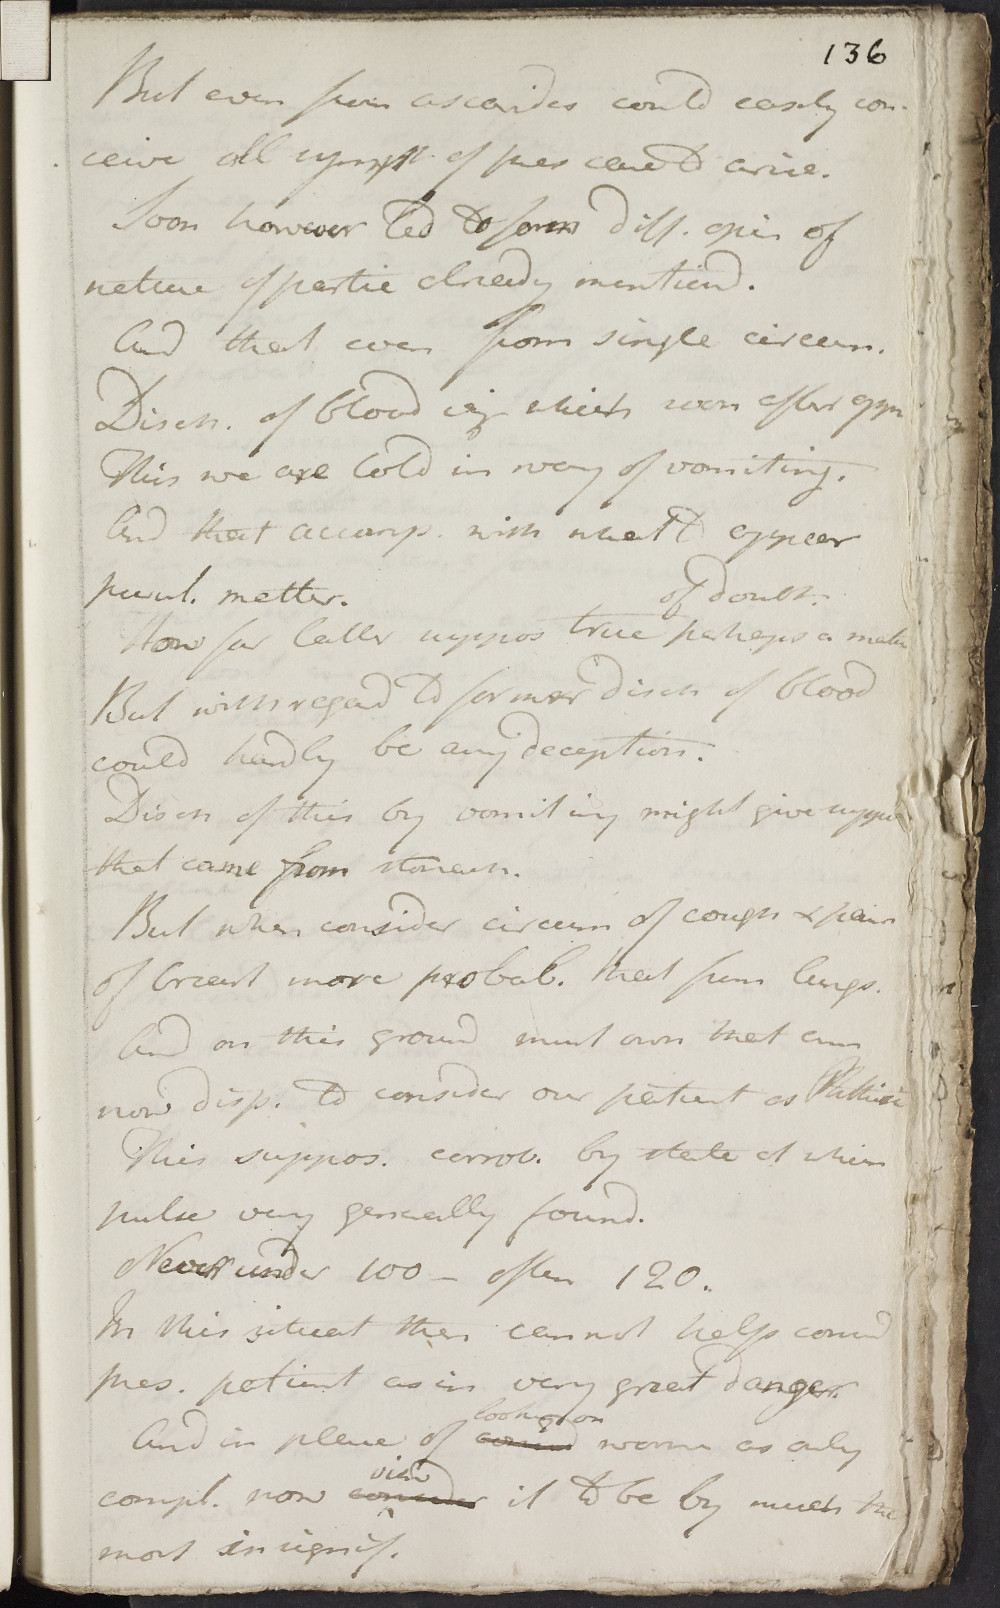 136
But even from ascarides could easily con-
ceive all sympt. of pres case to arise.
Soon however led to form diff. opin of
nature of partic already mentiond.
And that even from single circum.
Disch. of blood wh soon after
This we are told in way of vomiting.
And that accomp. with what to appear
purul. matter.
How far latter suppos true perhaps a matter
of doubt.
But with regard to former disch of blood
could hardly be any deception.
Disch of this by vomiting might give suppos
that came from stomach.
But when consider circum of cough & pain
of breast more probab. that from lungs.
And on this ground must own that am
now disp. to consider our patient as Phthisic
This suppos. corrob. by state at which
pulse very generally found.
Never under 100 - often 120.
In this situat then cannot help consid
pres. patient as in very great danger.
And in place of looking on worm as only
compl. now view it to be by much the
most insignif.